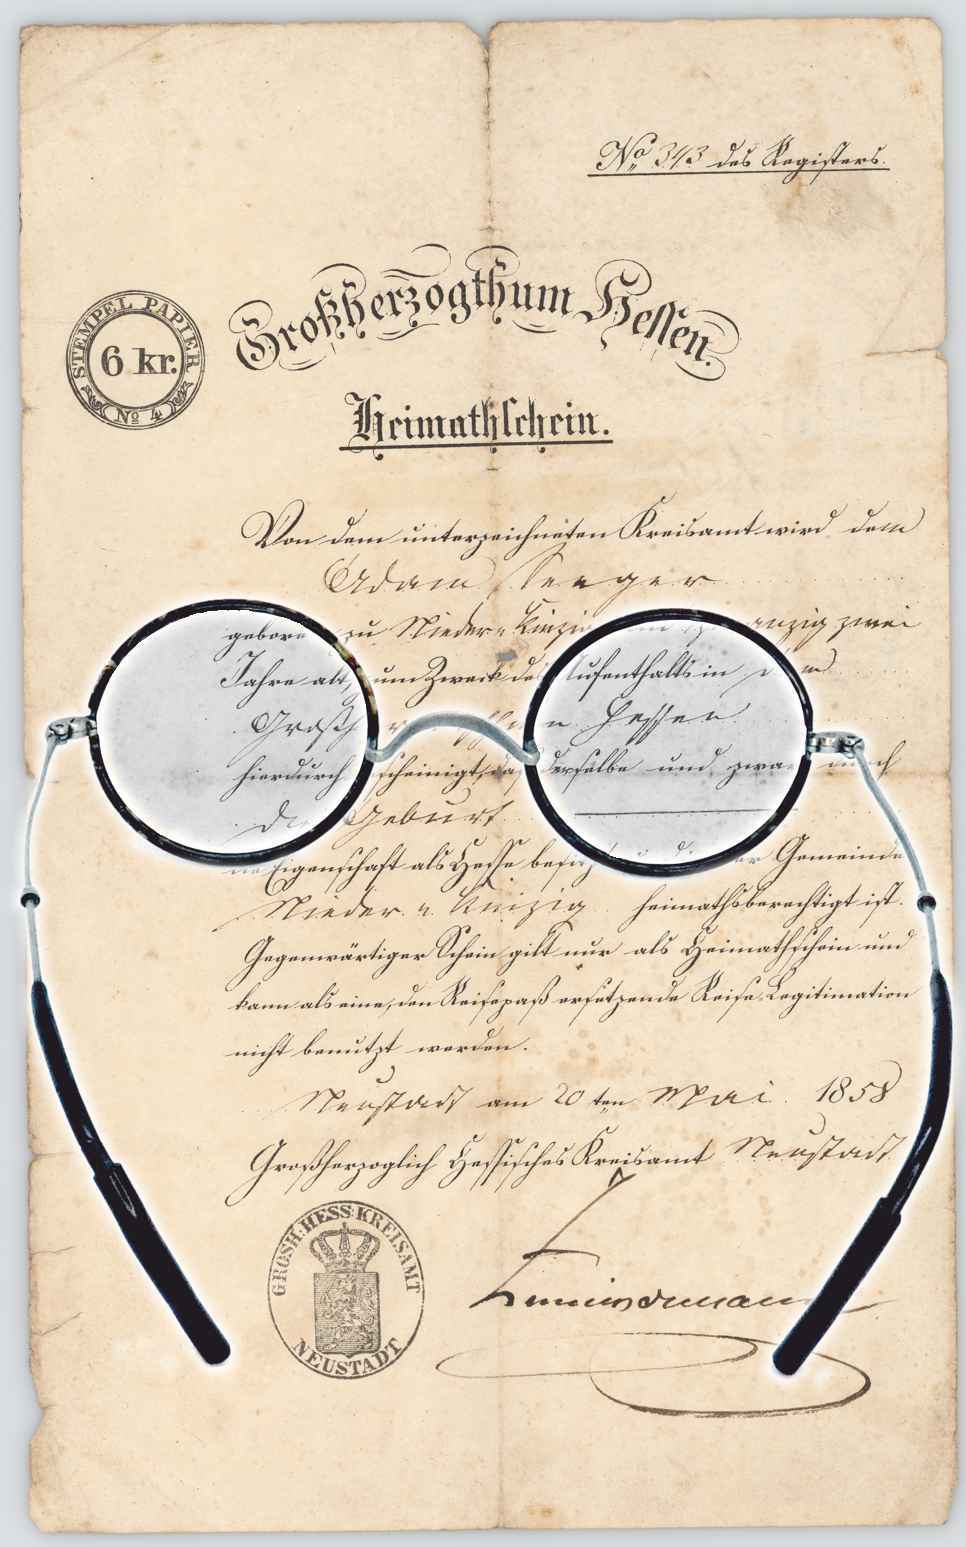 No 343 des Registers.
STEMPEL PAPIER
6 kr.
No 4
Großherzogthum Hessen.
Heimathschein.
Von dem unterzeichneten Kreisamt wird dem
Adam Seeger
geboren zu Nieder-Kinzig zwanzig zwei
Jahre alt, zum Zweck des Aufenthalts in dem
Hessen
hierdurch bescheinigt, daß derselbe und zwar nach
der Geburt
Eigenschaft als Hesse der Gemeinde
Nieder-Kinzig heimathsberechtigt ist.
Gegenwärtiger Schein gilt nur als Heimathschein und
kann als eine, den Reisepaß ersetzende Reise-Legitimation
nicht benutzt werden.
Neustadt am 20ten Mai 1858
Großherzoglich Hessisches Kreisamt Neustadt
GROSH. HESS. KREISAMT
NEUSTADT